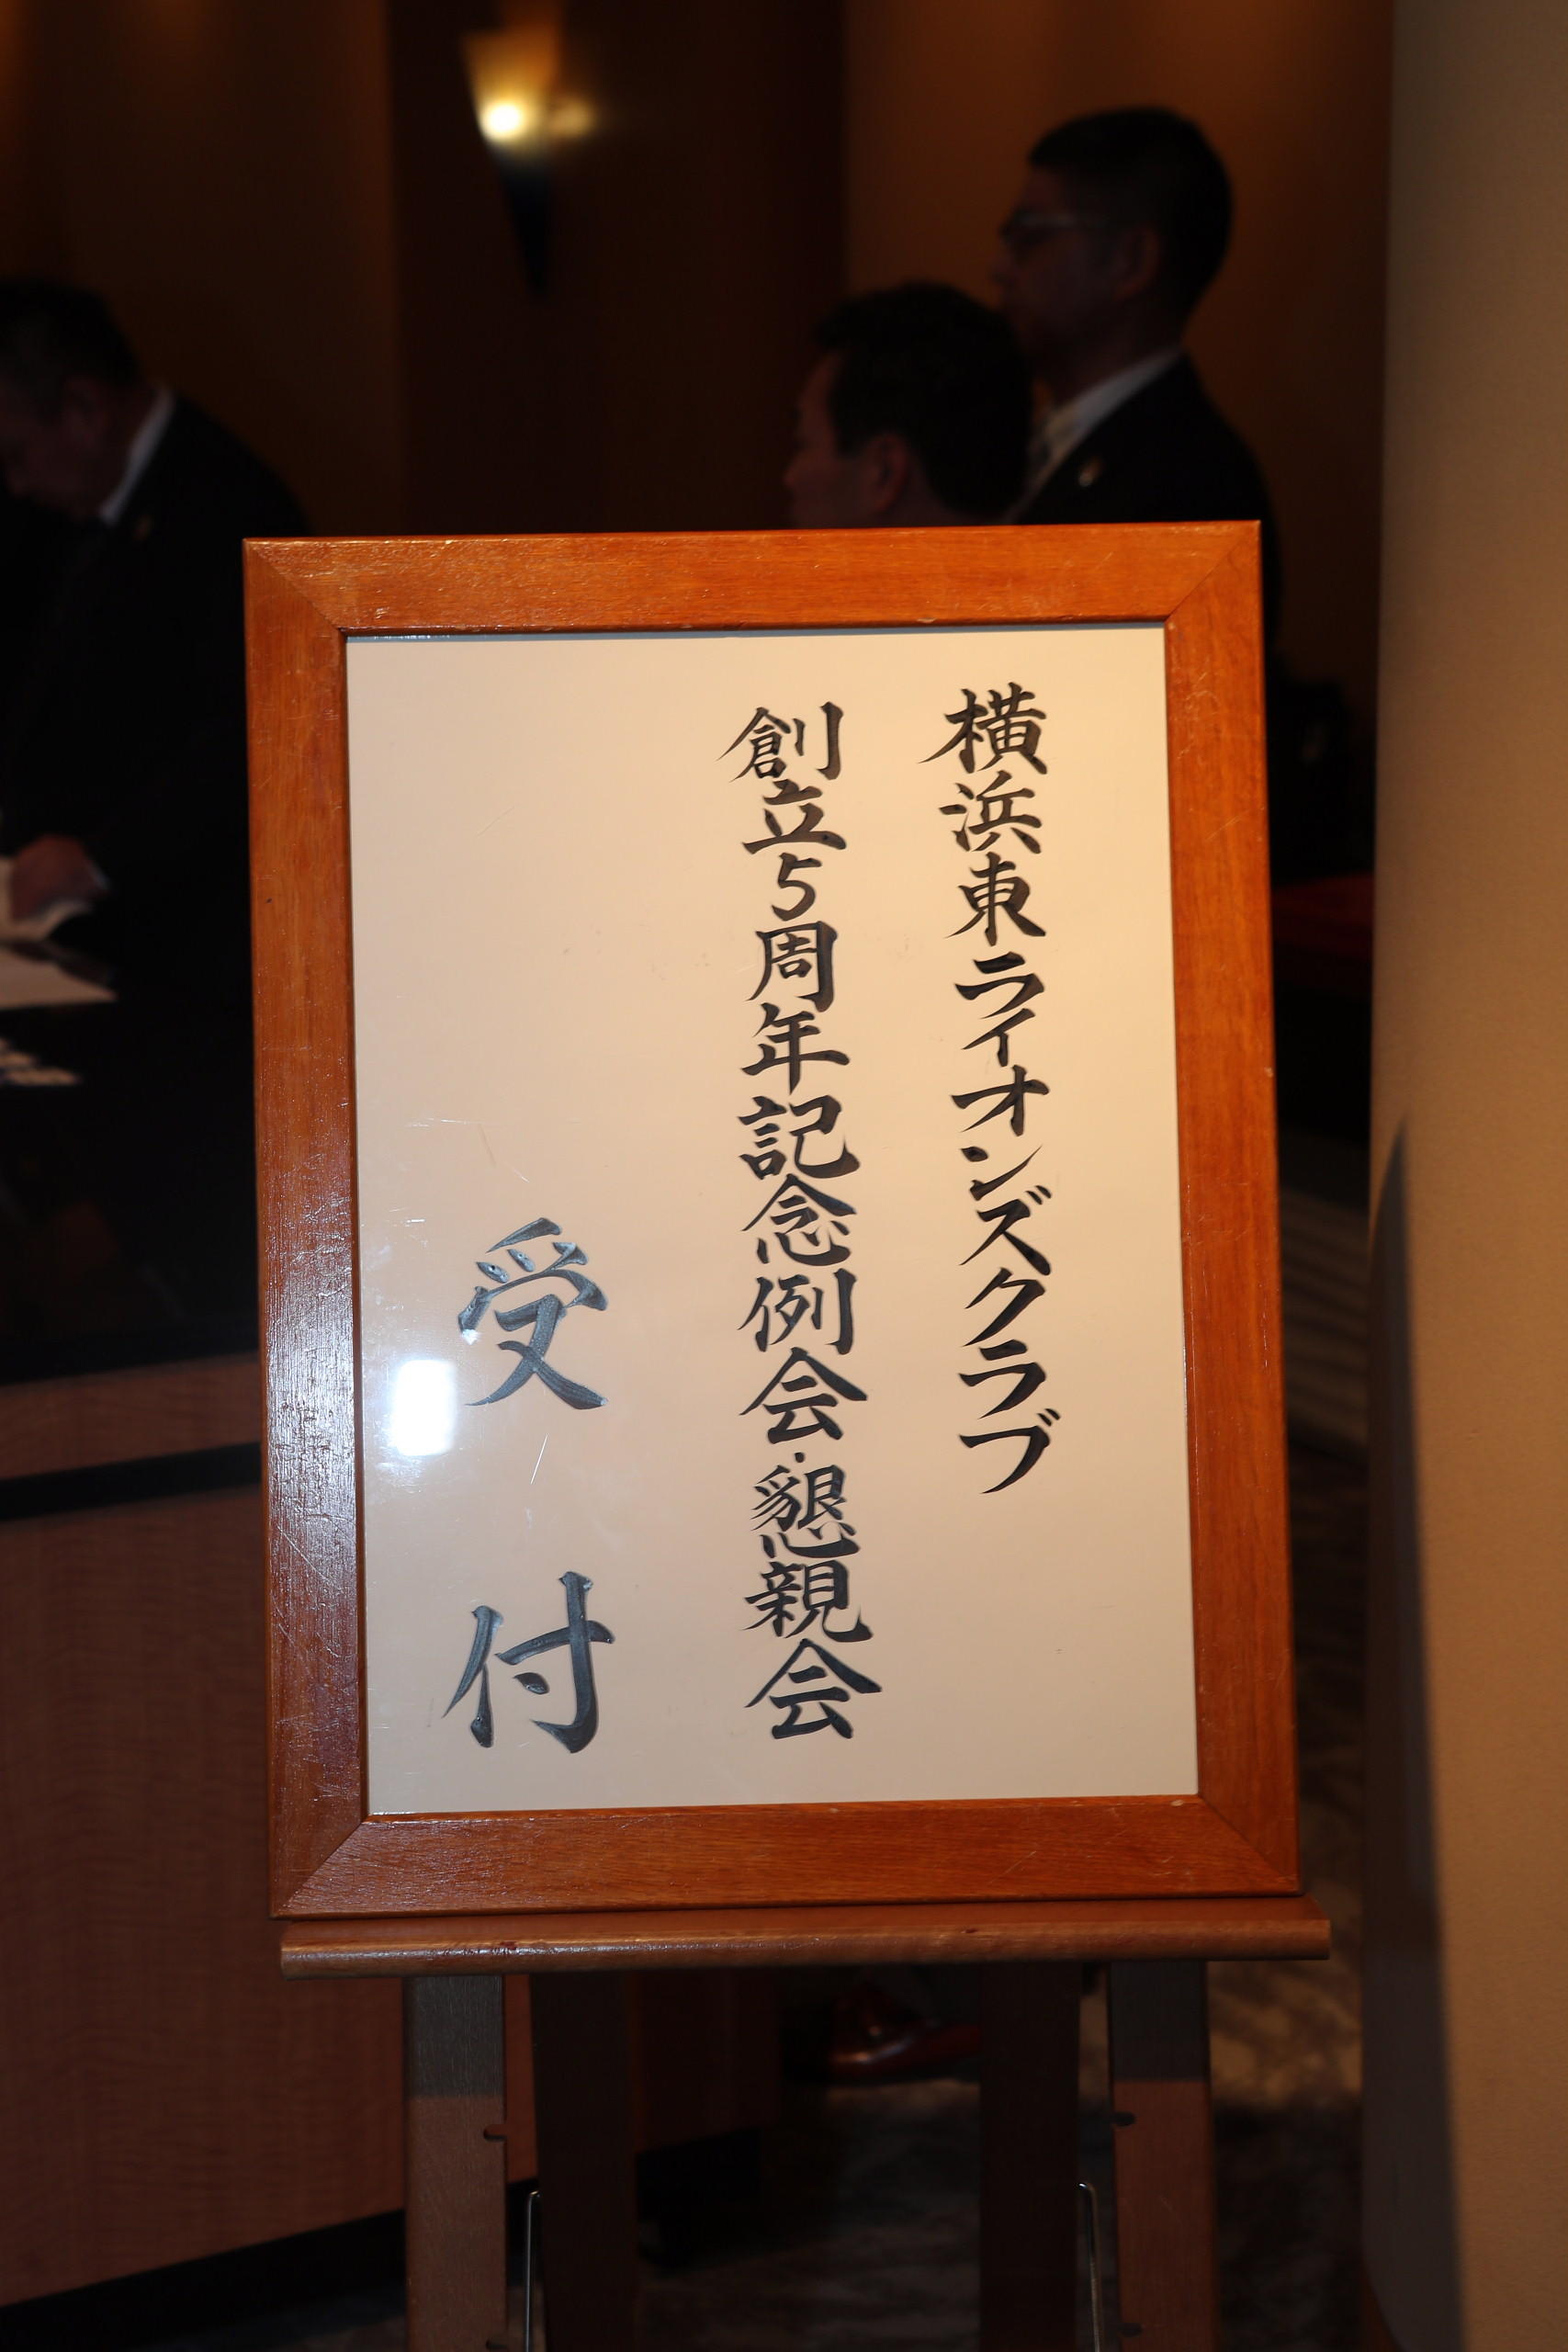 横浜東ライオンズクラブ
創立5周年記念例会・懇親会
受付